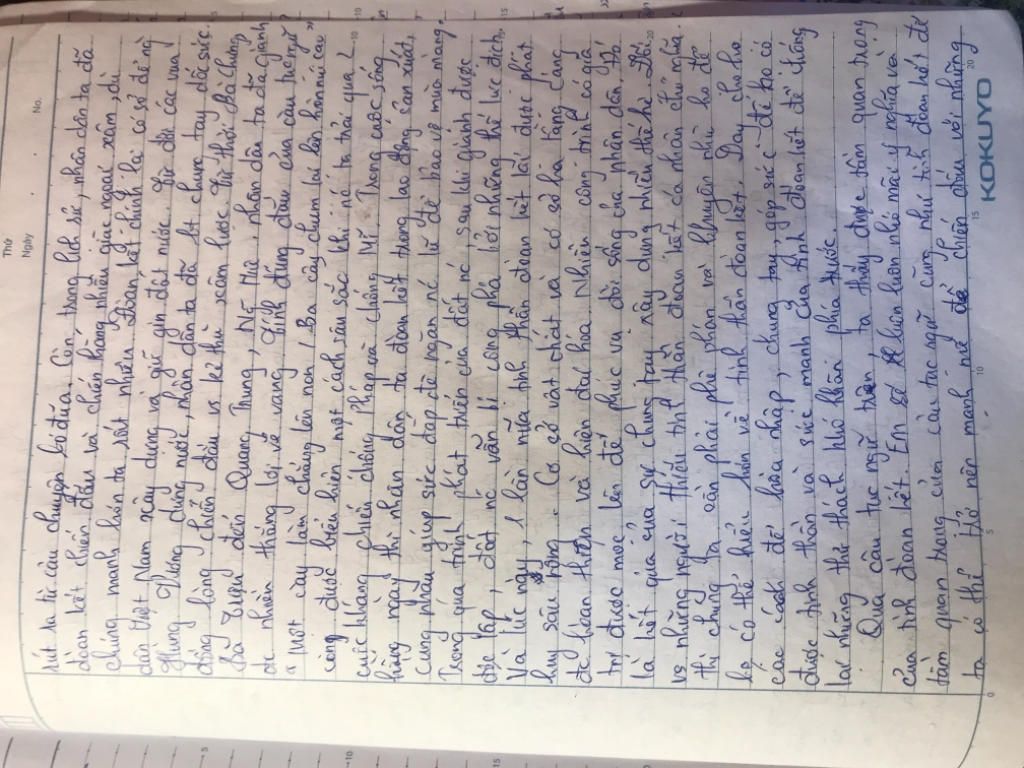 Thứ
Ngày
No.
rút ra từ câu chuyện bó đũa. Còn trong lịch sử, nhân dân ta đã
đoàn kết chiến đấu và chiến thắng nhiều giặc ngoại xâm, dù
chúng mạnh hơn ta rất nhiều. Đoàn kết chính là cơ sở để nhân
dân Việt Nam xây dựng và giữ gìn đất nước. Từ đời các vua
Hùng Vương dựng nước, nhân dân ta đã bt chung tay dốc sức,
đồng lòng chiến đấu vs kẻ thù xâm lược. Từ thời Bà Trưng
Bà Triệu đến Quang Trung, Ng Huệ, nhân dân ta đã giành
đc nhiều thắng lợi vẻ vang. Tính đúng đắn của câu tục ngữ
" Một cây làm chẳng lên non / Ba cây chụm lại lên hòn núi cao "
càng được biểu hiện một cách sâu sắc khi nc ta trải qua 2
cuộc kháng chiến chống Pháp và chống Mĩ. Trong cuộc sống
hằng ngày thì nhân dân ta đoàn kết trong lao động sản xuất,
cùng nhau giúp sức đắp đê, ngăn nc lũ để bảo vệ mùa màng.
Trong quá trình phát triển của đất nc, sau khi giành được
độc lập, đất nc vẫn bị công phá bởi những thế lực địch.
Và lúc này, 1 lần nữa tinh thần đoàn kết lại được phát
huy sâu rộng. Cơ sở vật chất và cơ sở hạ tầng càng
đc hoàn thiện và hiện đại hóa. Nhiều công trình có giá
trị được mọc lên để phục vụ đời sống của nhân dân. Đó
là kết quả của sự chung tay xây dựng nhiều thế hệ. Đối
vs những người thiếu tinh thần đoàn kết, cá nhân chủ nghĩa
thì chúng ta cần phải phê phán và khuyên nhủ họ để
họ có thể hiểu hơn về tinh thần đoàn kết. Dạy cho họ
các cách để hòa nhập, chung tay, góp sức để họ có
được tinh thần và sức mạnh của tinh đoàn kết để kháng
lại những thử thách khó khăn phía trước.
Qua câu tục ngữ trên, ta thấy được tầm quan trọng
của tình đoàn kết. Em sẽ luôn nhớ mãi ý nghĩa và
tầm quan trọng của câu tục ngữ cũng như tình đoàn kết để
ta có thể trở nên mạnh mẽ để chiến đấu với những
KOKUYO